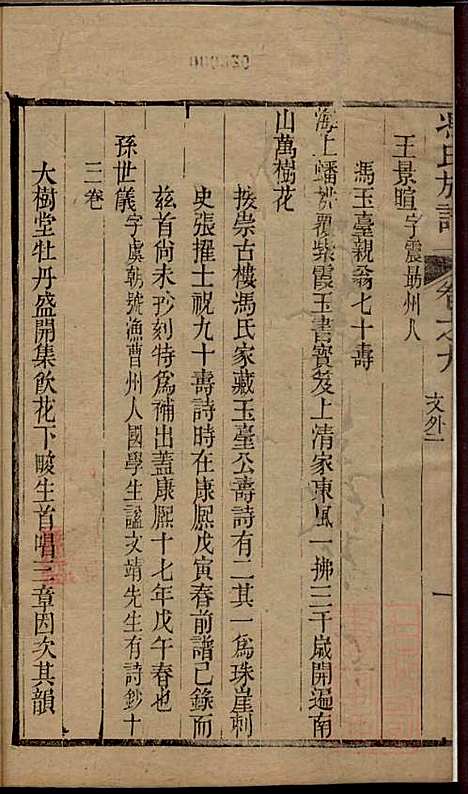 馮氏族譜
卷之九
文外一
一
王景暄字震勗州人
馮玉臺親翁七十壽
海上蟠桃覆紫霞玉書寶笈上清家東風一拂三千歲開遍南
山萬樹花
按崇古樓馮氏家藏玉臺公壽詩有二其一爲珠崖刺
史張擢士祝九十壽詩時在康熙戊寅春前譜已錄而
茲首尚未抄刻特爲補出蓋康熙十七年戊午春也
孫世儀字虞朝號漁曹州人國學生諡文靖先生有詩鈔十
二卷
大樹堂牡丹盛開集飲花下畯生首唱三章因次其韻